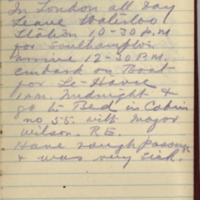 In London all day
Leave Waterloo
Station 10-30 P.M
for Southampton
arrive 12-30 P.M.
embark on Boat
for Le-Havre
1 a.m. Midnight &
go to Bed in Cabin
no 55 with Major
Wilson. R.E.
Have rough passage
& was very sick.